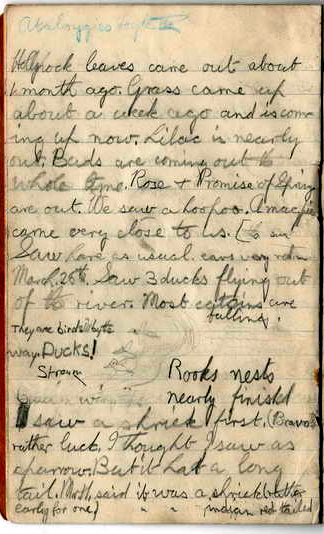 Apologies to
Hollyhock leaves came out about
1 month ago. Grass came up
about a week ago and is com-
ing up now. Lilac is nearly
out. Buds are coming out the
whole time. Rose & Promise of Spring
are out. We saw a hoopoo. A magpie
came very close to us.
Saw hare as usual. ears very
March 26th. Saw 3 ducks flying out
of the river. Most catkins are
falling.
They are birds by the
way. DUCKS!
Rooks nests
nearly finished
I saw a shriek first. (Bravo)
rather luck, I thought I saw as
sparrow. But it had a long
tail. M said it was a shriek (rather
early for one) " " red tailed